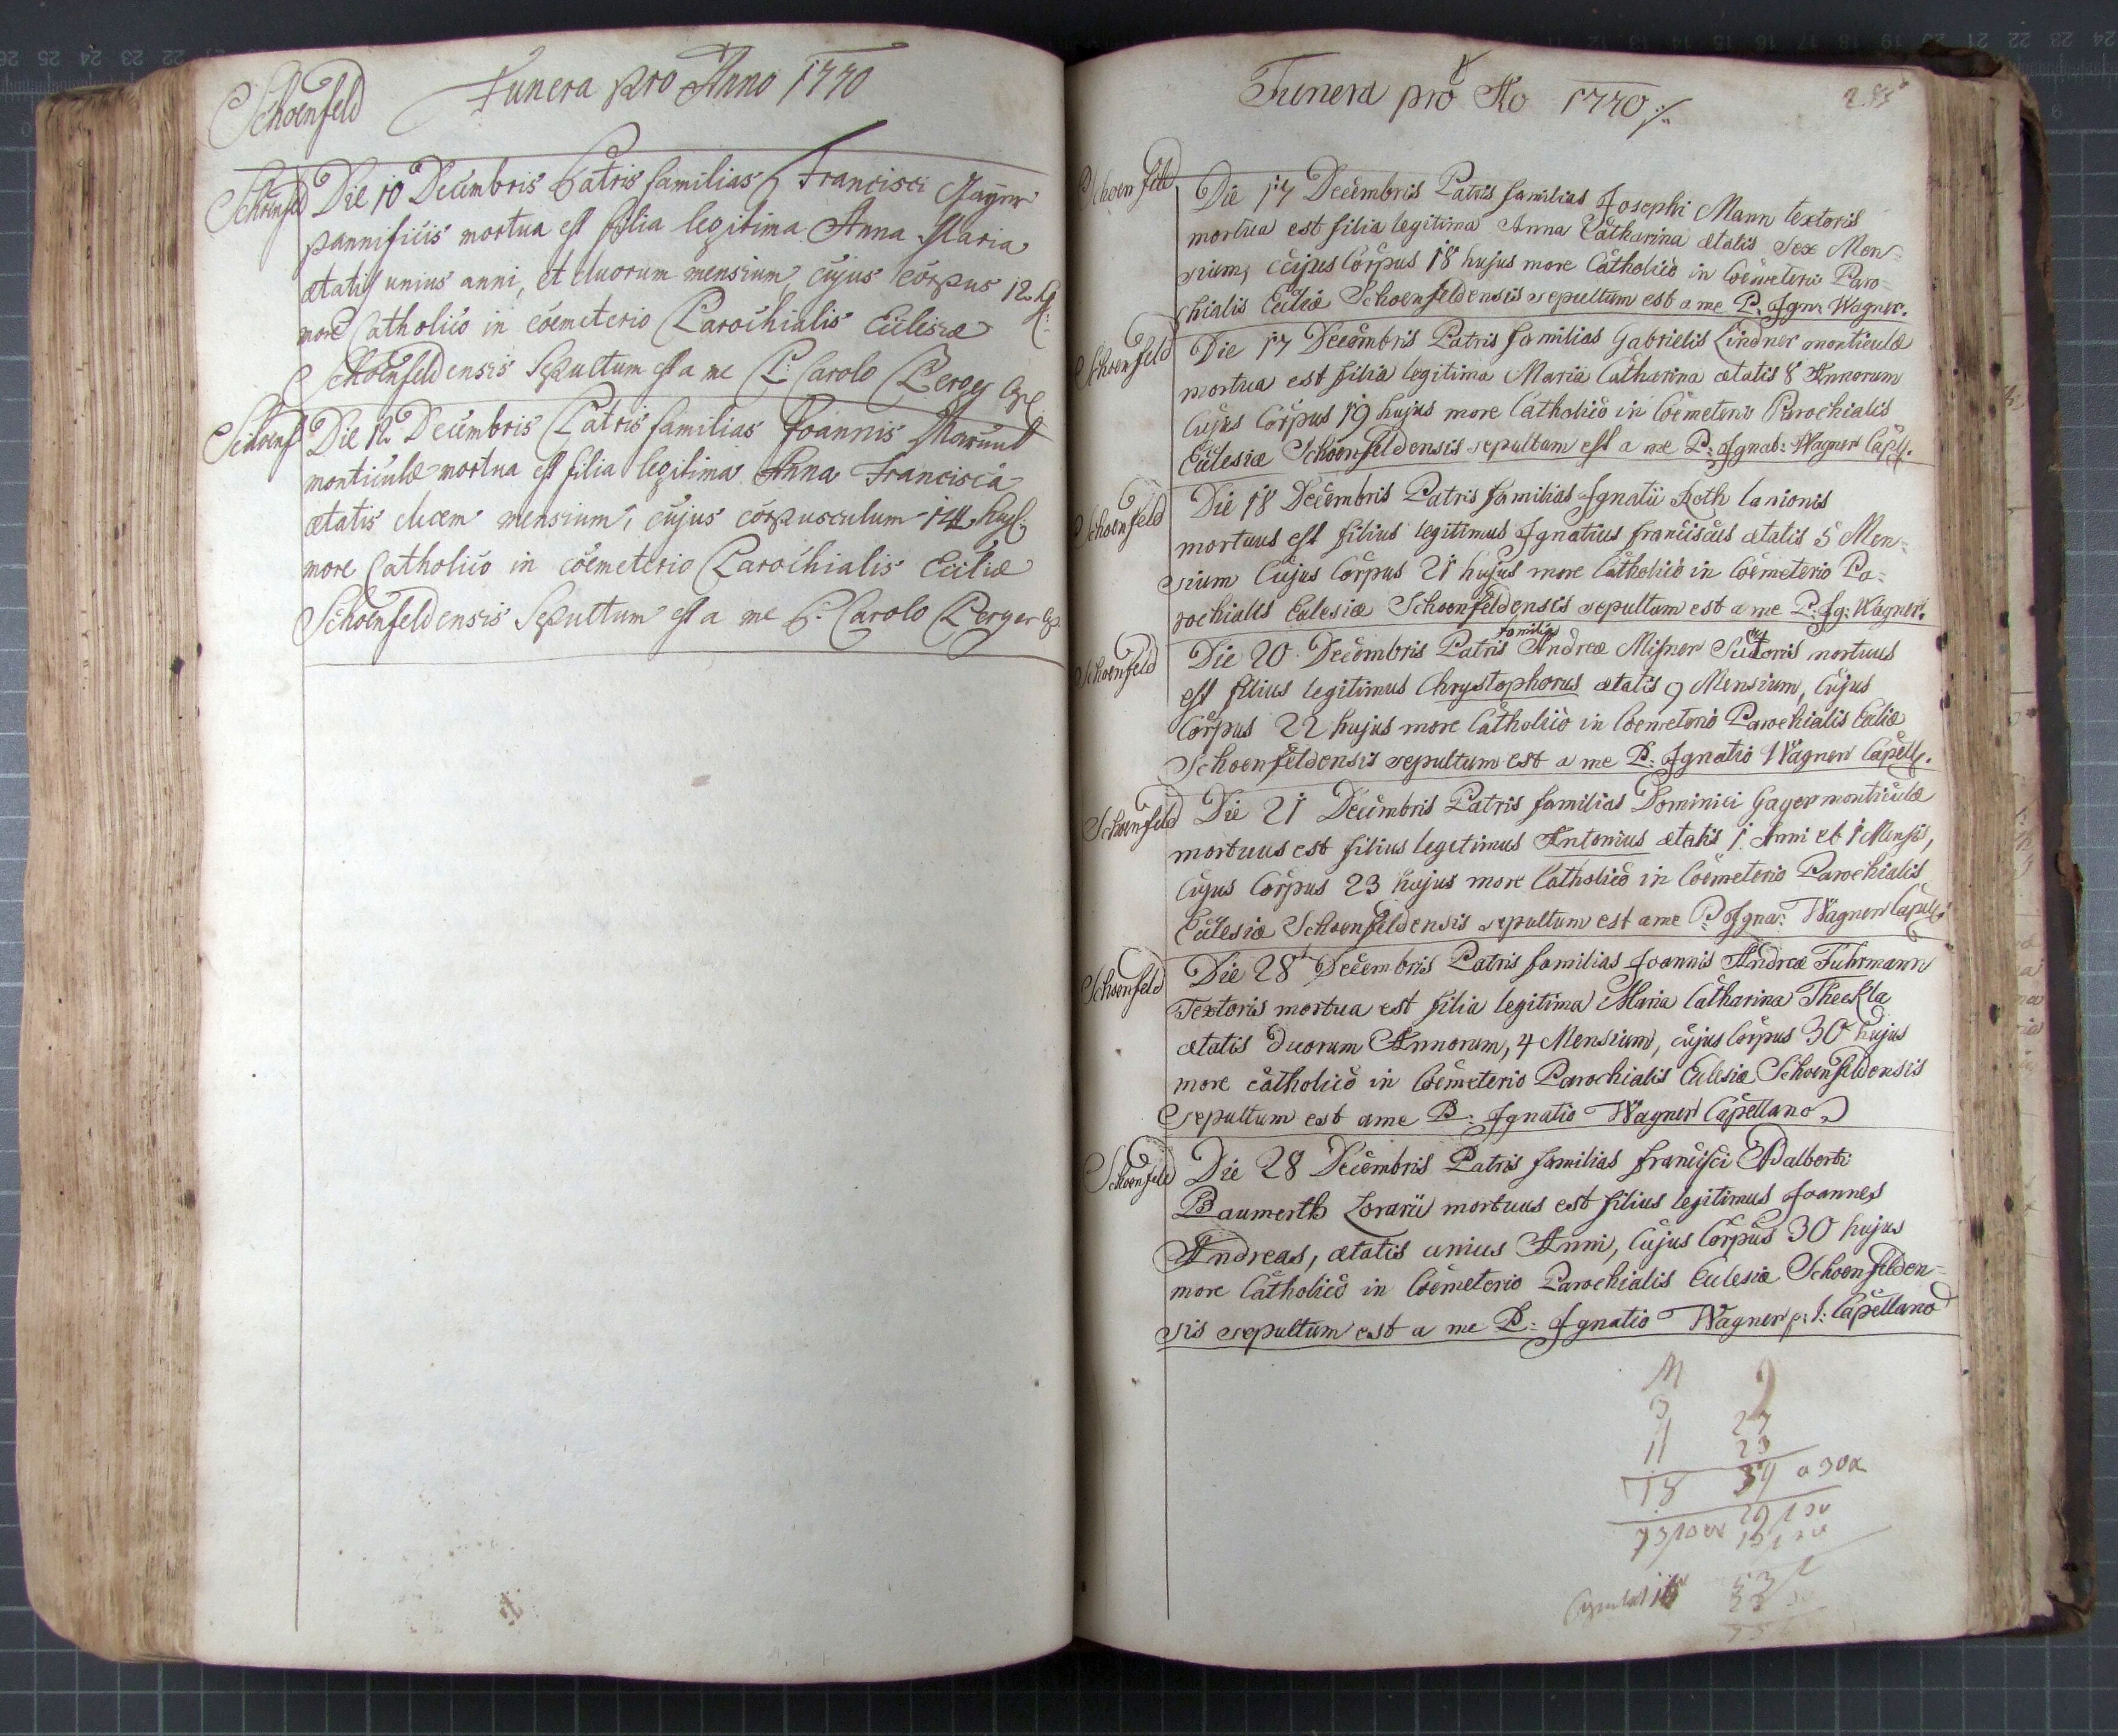 Schoenfeld
Funera pro Anno 1770
Schoenfeld
Die 10 Decembris Patris familias Francisci
pannificis mortua est filia legitima Anna Maria
ætatis unius anni, et duorum mensium, cujus corpus 12 h:
more Catholico in coemeterio Parochialis Ecclesiæ
Schoenfeldensis Sepultum est a me P: Carolo Perger Cap
Schoenf
Die 12 Decembris Patris familias Joannis
monticulæ mortua est filia legitima Anna Francisca
ætatis decem mensium, cujus corpusculum 14 huj:
more Catholico in coemeterio Parochialis Eccliæ
Schoenfeldensis Sepultum est a me P: Carolo Perger Cap
Funera pro Ao 1770 ·/.
Schoenfeld
Die 17 Decembris Patris familias Josephi Mann textoris
mortua est filia legitima Anna Catharina ætatis sex Men=
sium, cujus Corpus 18 hujus more Catholico in Coemeterio Paro=
chialis Eccliæ Schoenfeldensis sepultum est a me P: Ign: Wagner.
Schoenfeld
Die 17 Decembris Patris familias Gabrielis Lindner monticulæ
mortua est filia legitima Maria Catharina ætatis 8 Annorum
Cujus Corpus 19 hujus more Catholico in Coemeterio Parochialis
Ecclesiæ Schoenfeldensis sepultum est a me P: Ignat: Wagner Capll.
Schoenfeld
Die 18 Decembris Patris familias Ignatii Roth lanionis
mortuus est filius legitimus Ignatius franciscus ætatis 5 Men=
sium Cujus Corpus 21 hujus more Catholico in Coemeterio Pa=
rochialis Ecclesiæ Schoenfeldensis sepultum est a me P: Ig: Wagner.
Schoenfeld
Die 20 Decembris Patris familias Andreæ Misner Sutoris mortuus
est filius legitimus Chrystophorus ætatis 9 Mensium, Cujus
Corpus 22 hujus more Catholico in Coemeterio Parochialis Eccliæ
Schoenfeldensis sepultum est a me P: Ignatio Wagner Capell.
Schoenfeld
Die 21 Decembris Patris familias Dominici Gayer monticulæ
mortuus est filius legitimus Antonius ætatis 1 Anni et 1 Mensis,
Cujus Corpus 23 hujus more Catholico in Coemeterio Parochialis
Ecclesiæ Schoenfeldensis sepultum est a me P: Igna: Wagner Capell.
Schoenfeld
Die 28 Decembris Patris familias Joannis Andreæ Fuhrmann
Textoris mortua est filia legitima Maria Catharina Theckla
ætatis duorum Annorum, 4 Mensium, cujus Corpus 30 hujus
more catholico in Coemeterio Parochialis Ecclesiæ Schoenfeldensis
sepultum est a me P: Ignatio Wagner Capellano
Schoenfeld
Die 28 Decembris Patris familias francisci Adalberti
Baumerth Lorarii mortuus est filius legitimus Joannes
Andreas, ætatis unius Anni, Cujus Corpus 30 hujus
more Catholico in Coemeterio Parochialis Ecclesiæ Schoenfelden=
sis sepultum est a me P: Ignatio Wagner p: t: Capellano